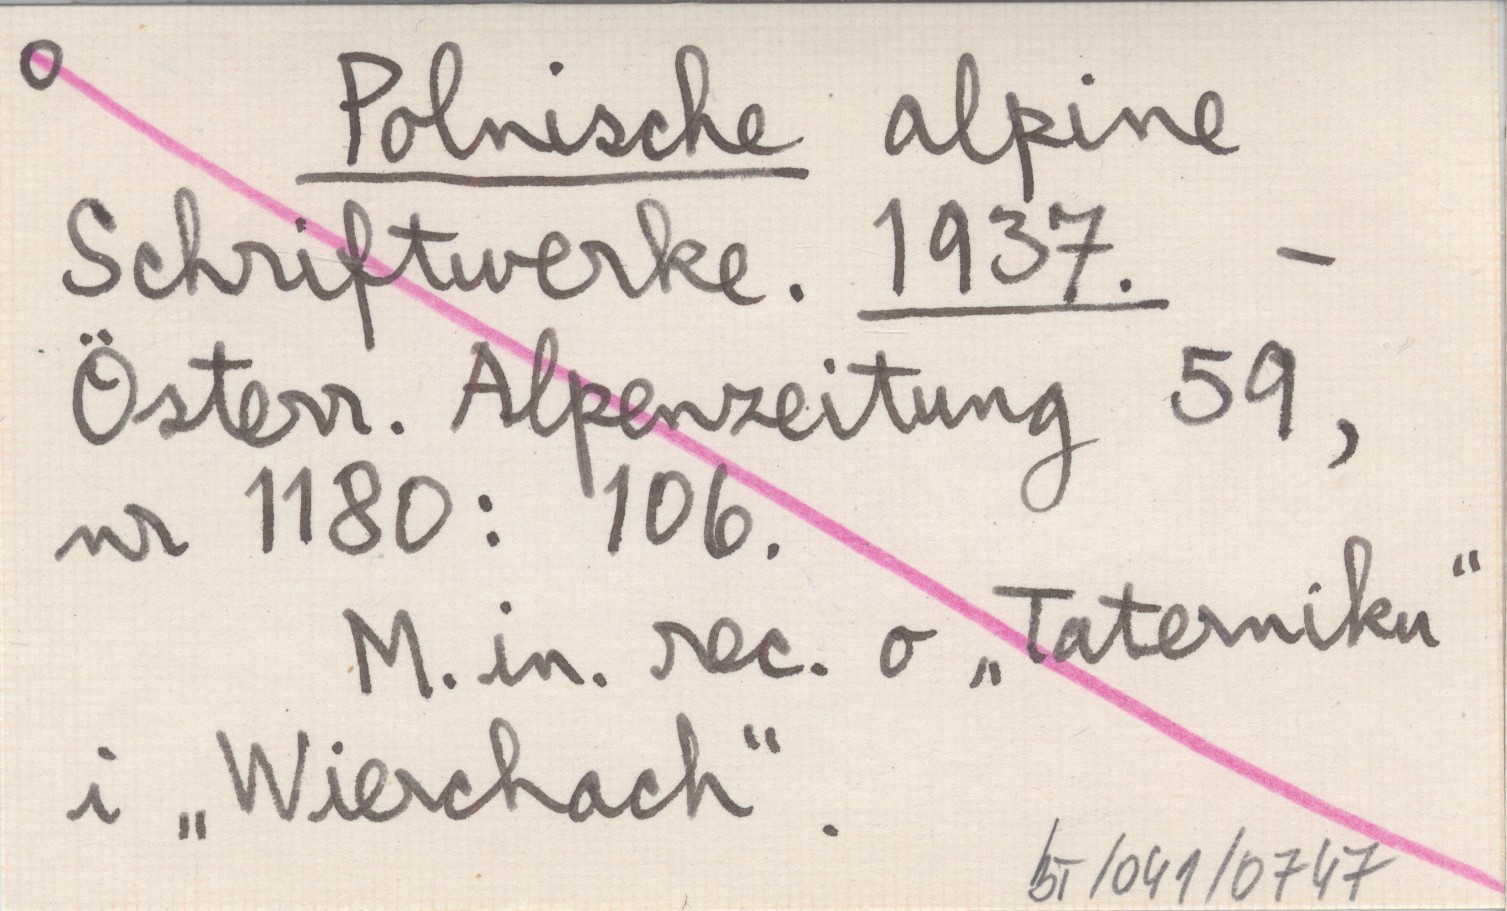 o Polnische alpine
Schriftwerke. 1937. –
Österr. Alpenzeitung 59,
nr 1180: 106.
M. in. rec. o „Taterniku“
i „Wierchach“.
bT/041/0747